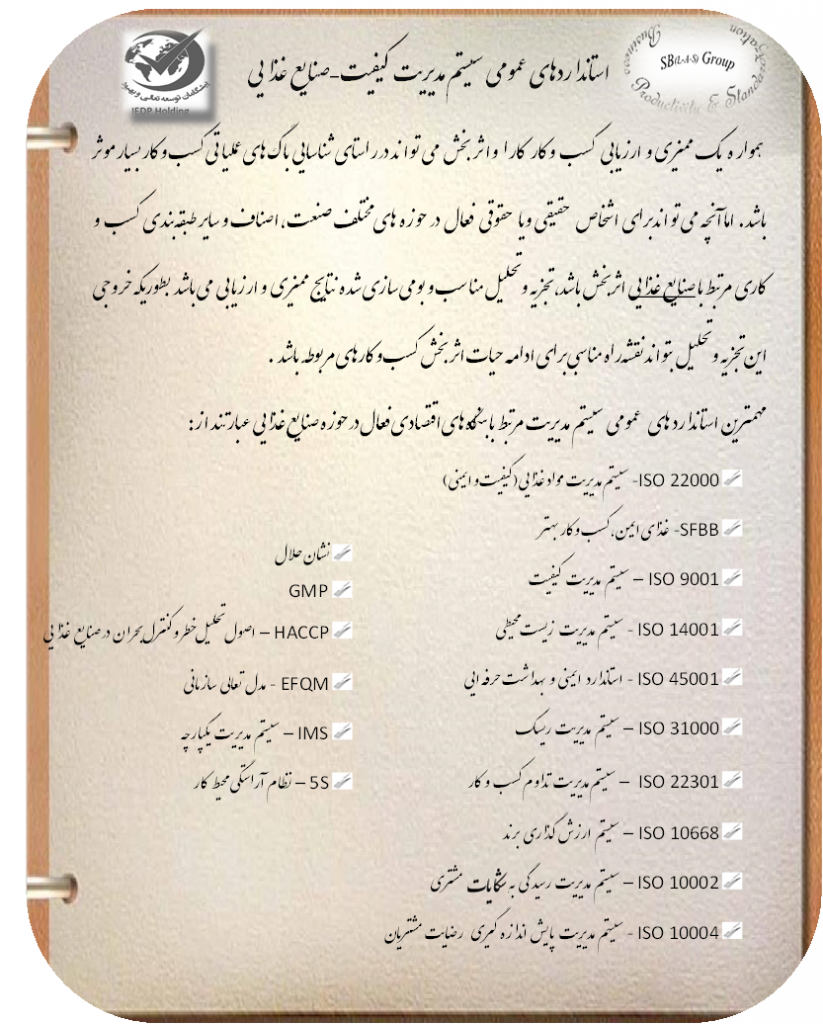 استانداردهای عمومی سیستم مدیریت کیفیت-صنایع غذایی
SB(هلدینگ) Group
Business
Productivity & Standardization
IEDP Holding
همواره یک ممیزی و ارزیابی کسب و کار کارا و اثربخش می تواند در راستای شناسایی باگ های عملیاتی کسب و کار بسیار موثر
باشد. اما آنچه می تواند برای اشخاص حقیقی و یا حقوقی فعال در حوزه های مختلف صنعت، اصناف و سایر طبقه بندی کسب و
کاری مرتبط با صنایع غذایی اثربخش باشد، تجزیه و تحلیل مناسب و بومی سازی شده نتایج ممیزی و ارزیابی می باشد بطوریکه خروجی
این تجزیه و تحلیل بتواند نقشه راه مناسبی برای ادامه حیات اثربخش کسب و کارهای مربوطه باشد .
مهمترین استانداردهای عمومی سیستم مدیریت مرتبط با بنگاه های اقتصادی فعال در حوزه صنایع غذایی عبارتند از:
ISO 22000- سیستم مدیریت مواد غذایی (کیفیت و ایمنی)
SFBB- غذای ایمن، کسب و کار بهتر
ISO 9001 – سیستم مدیریت کیفیت
ISO 14001 - سیستم مدیریت زیست محیطی
ISO 45001 - استاندارد ایمنی و بهداشت حرفه ایی
ISO 31000 – سیستم مدیریت ریسک
ISO 22301 – سیستم مدیریت تداوم کسب و کار
ISO 10668 – سیستم ارزش گذاری برند
ISO 10002 – سیستم مدیریت رسیدگی به شکایات مشتری
ISO 10004 - سیستم مدیریت پایش اندازه گیری رضایت مشتریان
نشان حلال
GMP
HACCP – اصول تحلیل خطر و کنترل بحران در صنایع غذایی
EFQM - مدل تعالی سازمانی
IMS – سیستم مدیریت یکپارچه
5S – نظام آراستگی محیط کار